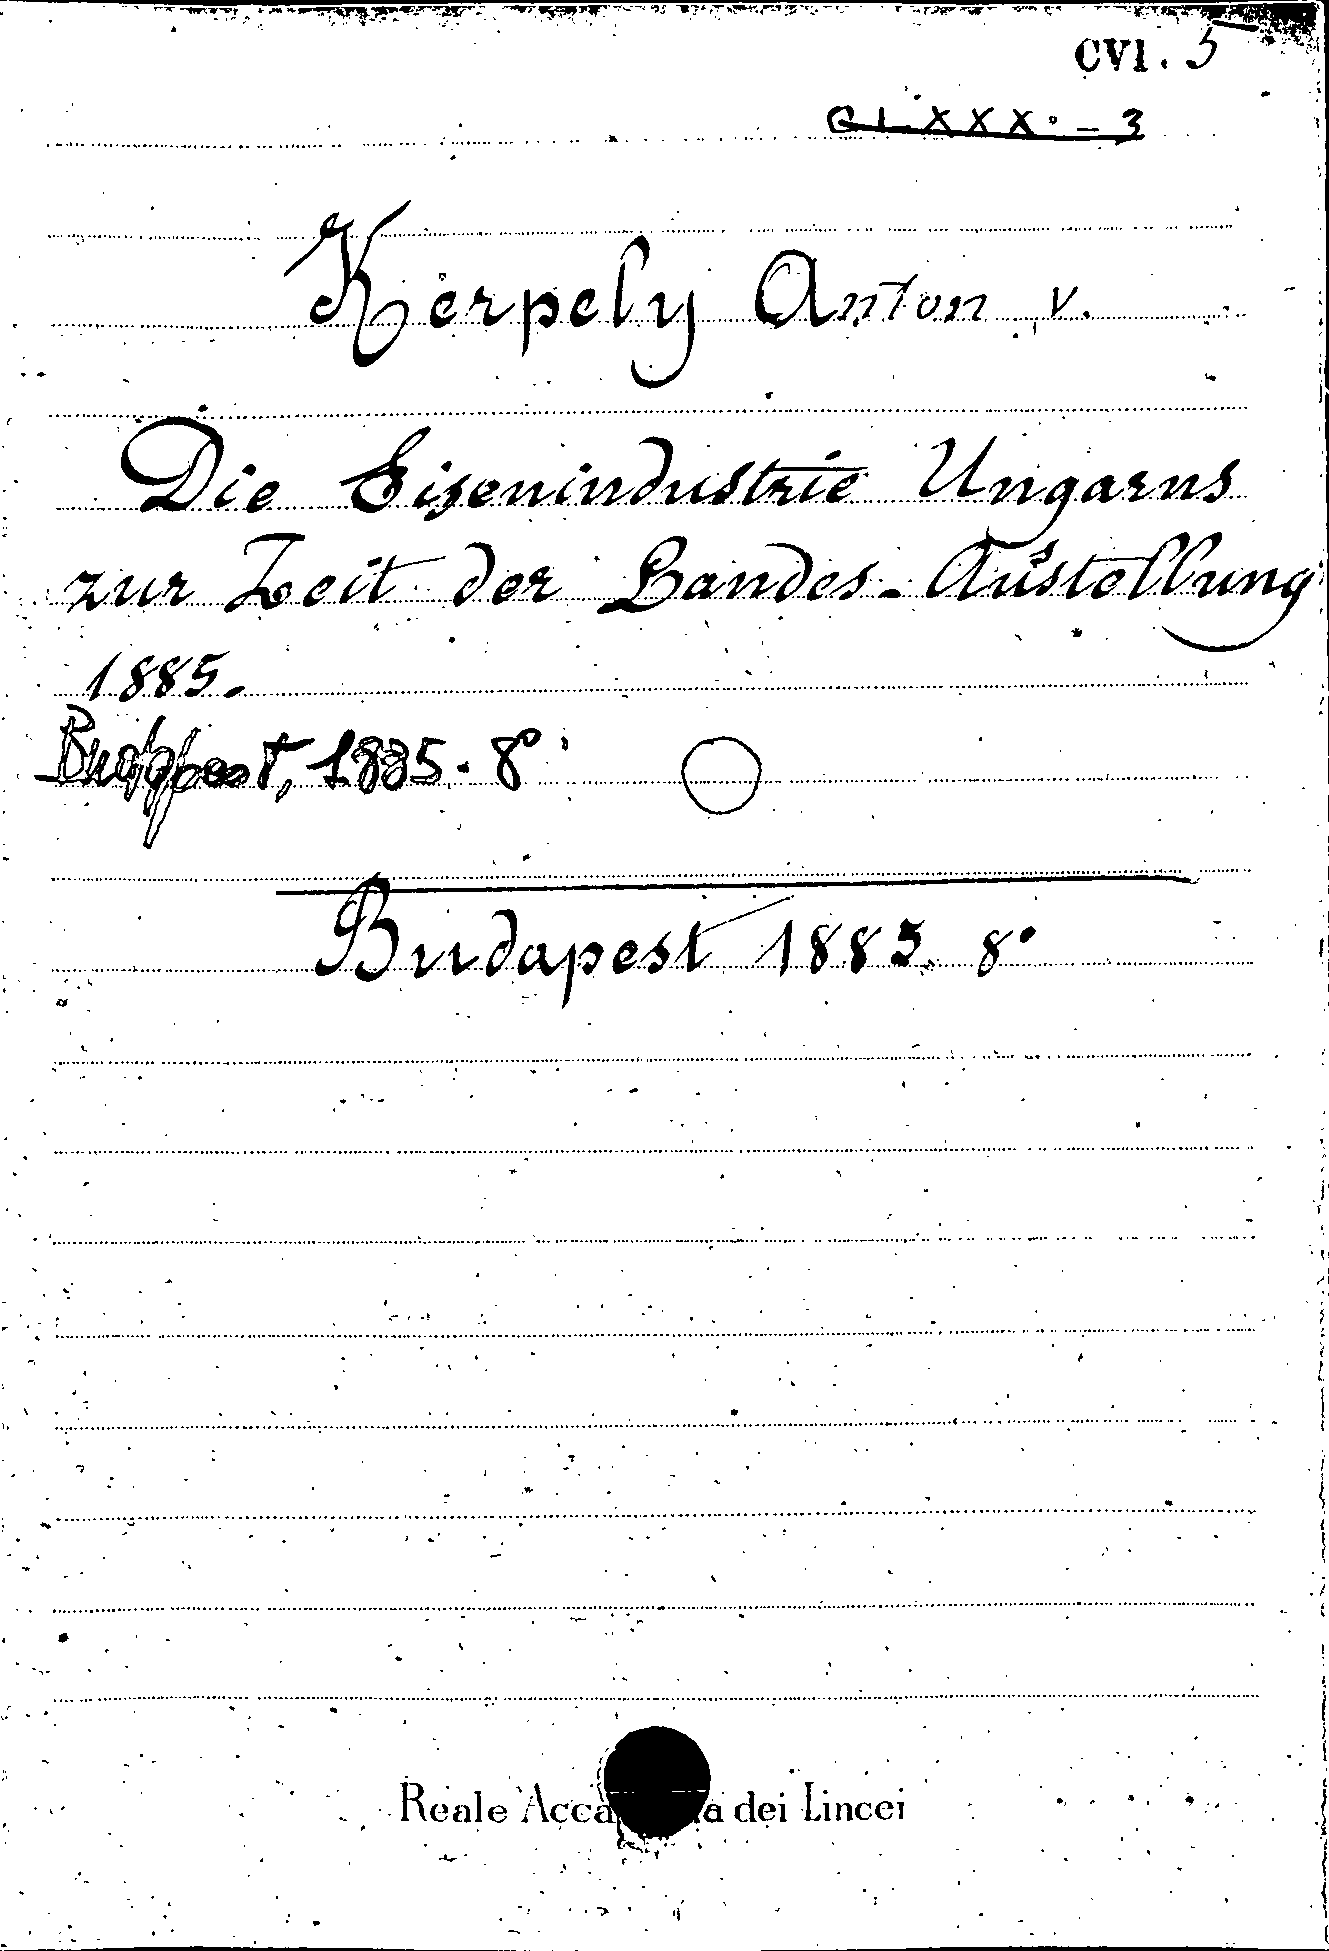 CVI. 5
CLXXX. - 3
Kerpely Anton v.
Die Eisenindustrie Ungarns
zur Zeit der Landes-Austellung
1885.
Budapest, 1885. 8°
Budapest 1885. 8°
Reale Acca a dei Lincei